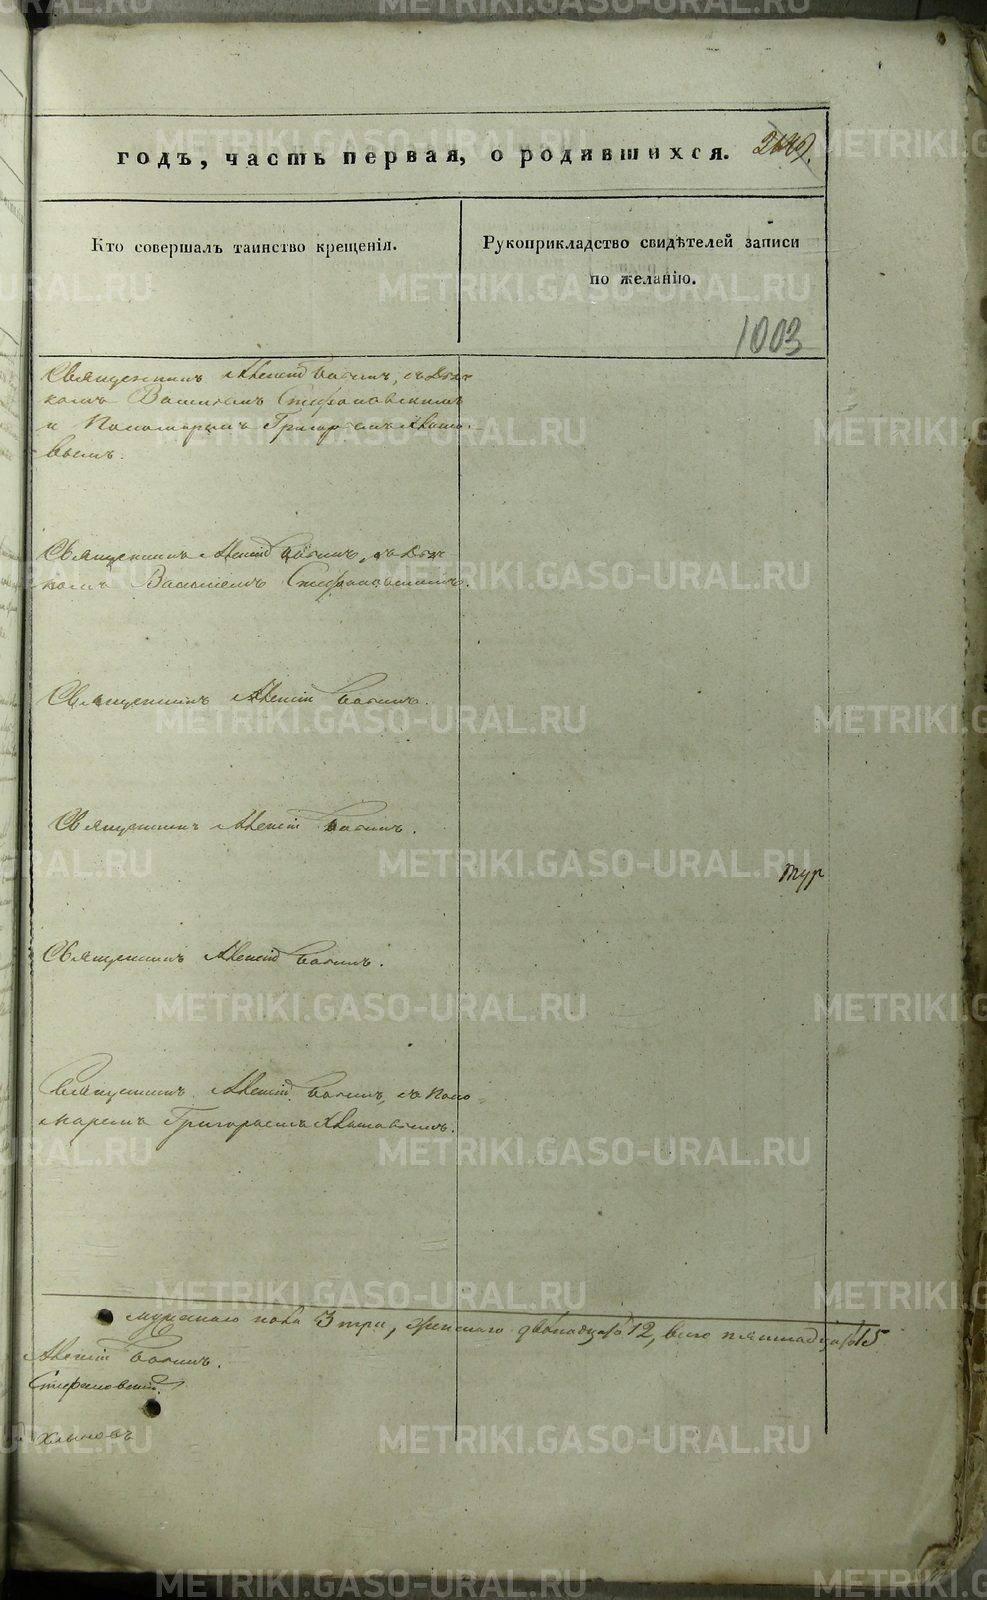 годъ, часть первая, о родившихся.
Кто совершалъ таинство крещенія.
Рукоприкладство свидѣтелей записи
по желанію.
1003
Священникъ Алексій, съ Дьяч-
комъ Василіемъ Стефановскимъ
и Пономаремъ Григорьемъ
вымъ.
Священникъ Алексій, съ Дьяч-
комъ Василіемъ Стефановскимъ.
Священникъ Алексій
Священникъ Алексій
тур
Священникъ Алексій
Священникъ Алексій, съ Поно-
маремъ Григорьемъ
мужеска пола 3 три, женскаго двѣнадцать 12, всего пятнадцать 15
Алексій
Стефановскій.
METRIKI.GASO-URAL.RU